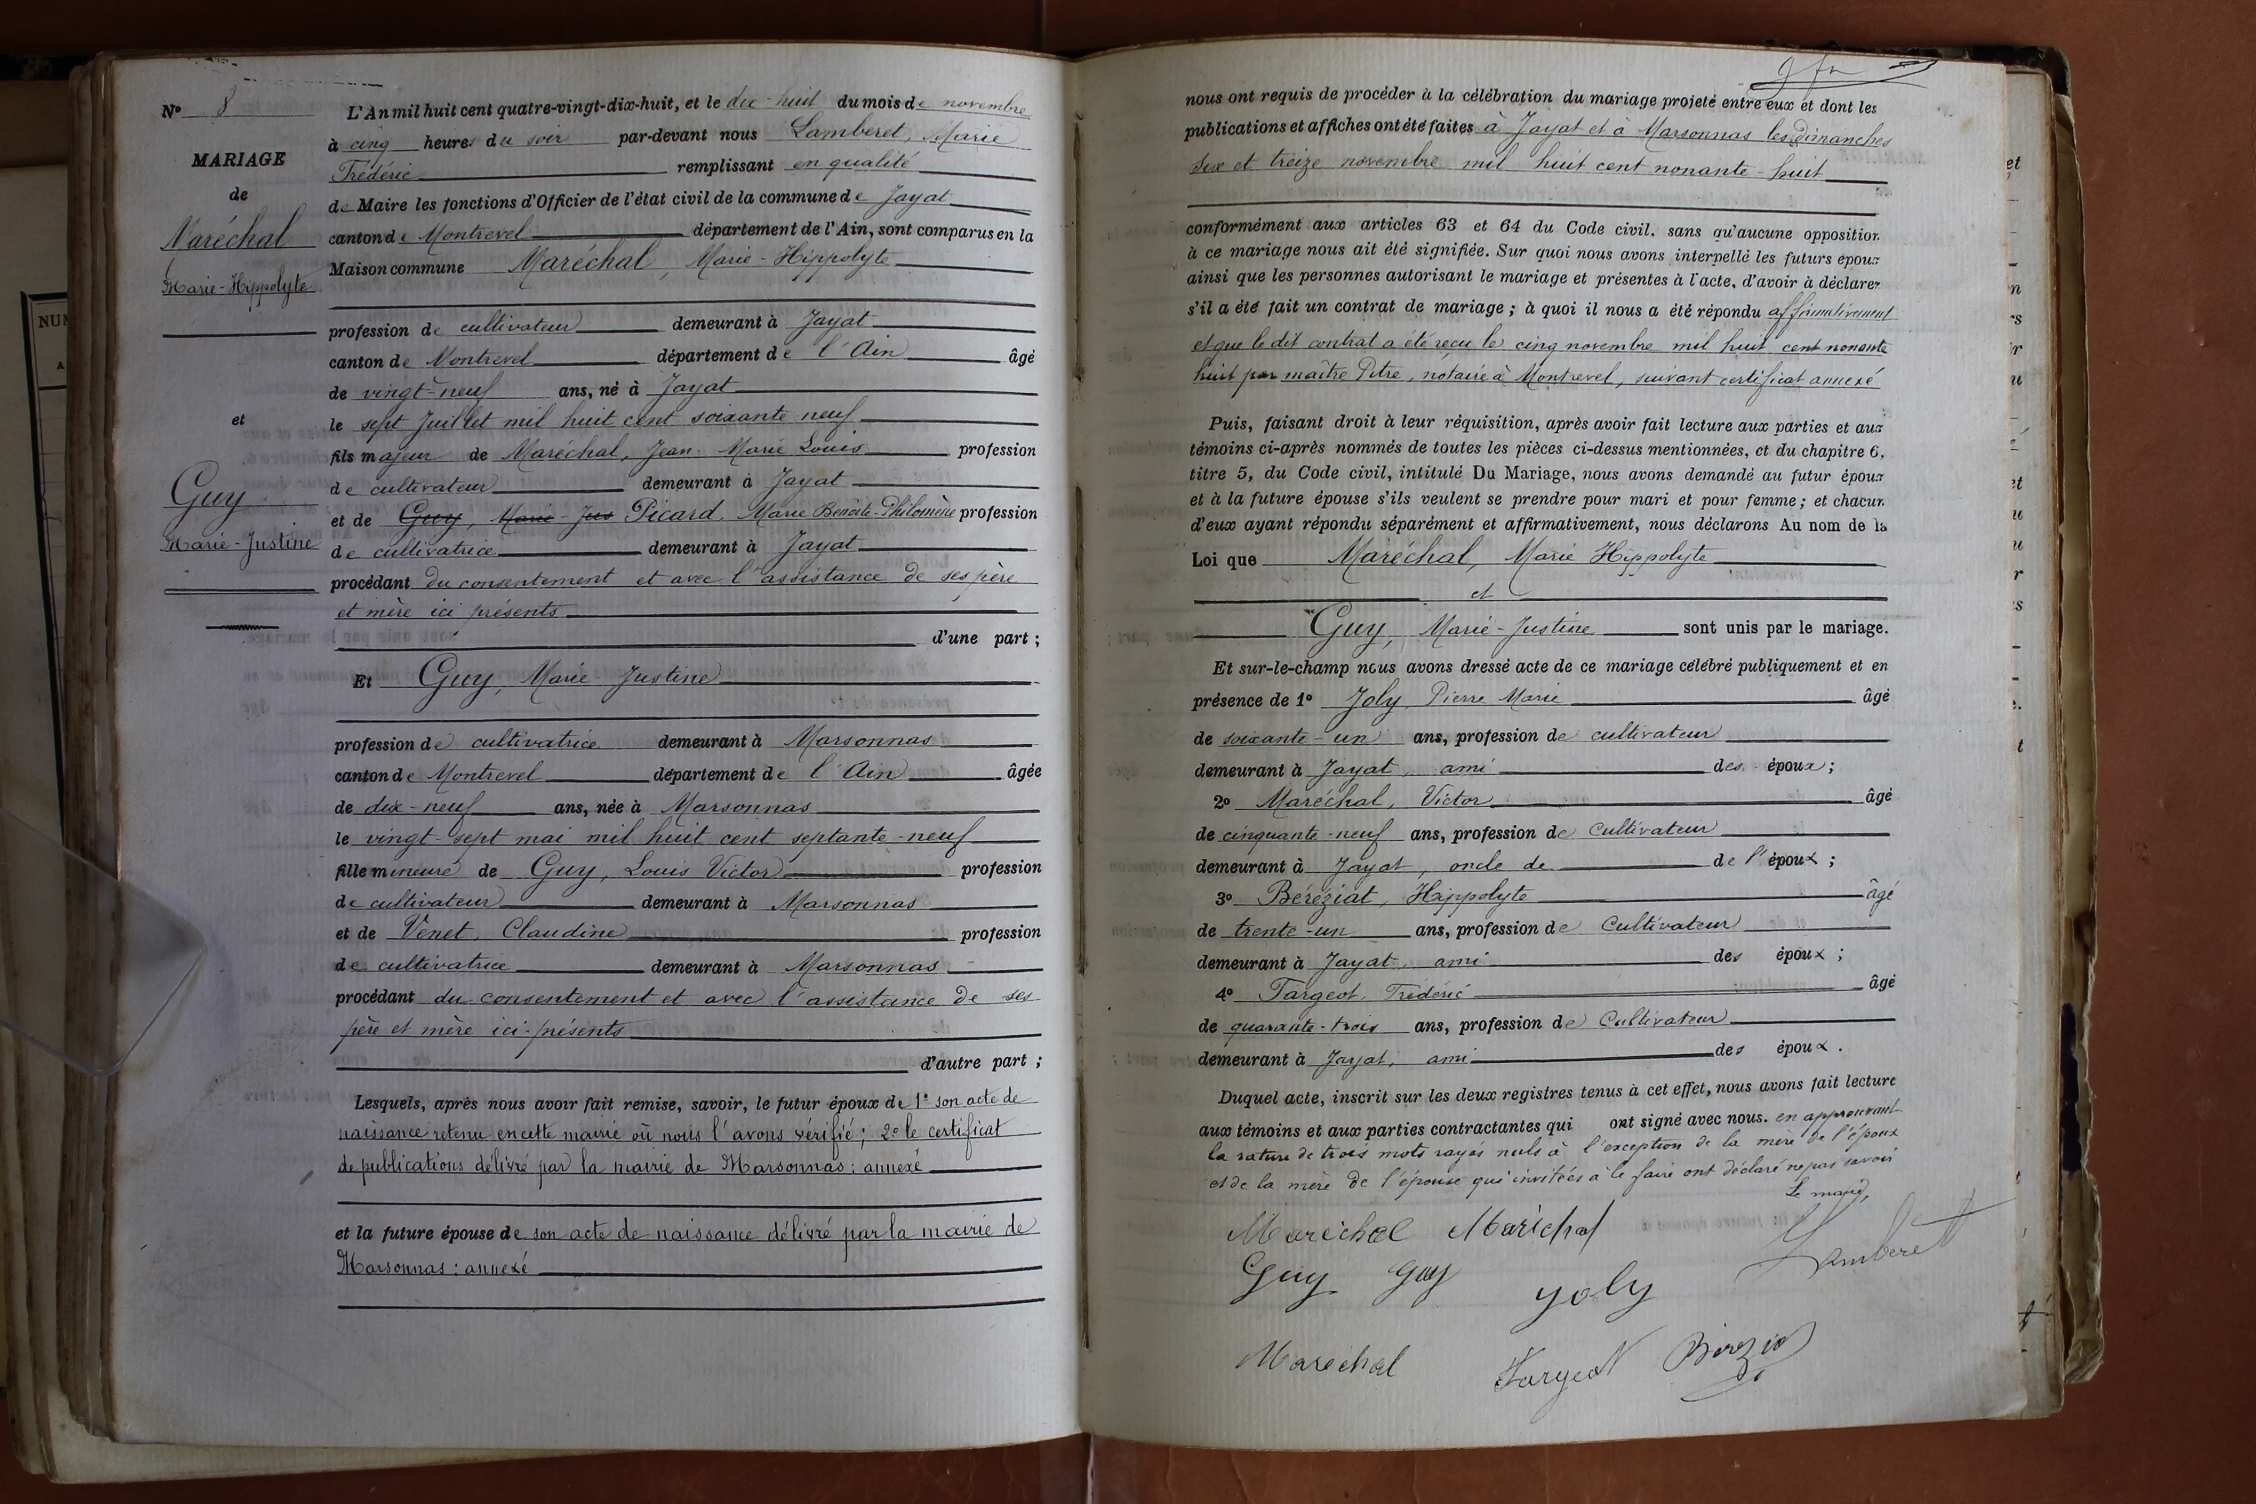 N° 8
MARIAGE
de
Maréchal
Marie-Hippolyte
et
Guy
Marie-Justine
L'An mil huit cent quatre-vingt-dix-huit, et le dix-huit du mois de novembre
à cinq heures du soir par-devant nous Lamberet, Marie
Frédéric remplissant en qualité
de Maire les fonctions d'Officier de l'état civil de la commune de Jayat
canton de Montrevel département de l'Ain, sont comparus en la
Maison commune Maréchal, Marie-Hippolyte
profession de cultivateur demeurant à Jayat
canton de Montrevel département de l'Ain âgé
de vingt-neuf ans, né à Jayat
le sept Juillet mil huit cent soixante neuf
fils majeur de Maréchal, Jean-Marie Louis profession
de cultivateur demeurant à Jayat
et de Guy, Marie-Jus Picard, Marie Benoîte-Philomène profession
de cultivatrice demeurant à Jayat
procédant du consentement et avec l'assistance de ses père
et mère ici présents
d'une part ;
Et Guy, Marie-Justine
profession de cultivatrice demeurant à Marsonnas
canton de Montrevel département de l'Ain âgée
de dix-neuf ans, née à Marsonnas
le vingt-sept mai mil huit cent septante-neuf
fille mineure de Guy, Louis Victor profession
de cultivateur demeurant à Marsonnas
et de Venet, Claudine profession
de cultivatrice demeurant à Marsonnas
procédant du consentement et avec l'assistance de ses
père et mère ici-présents
d'autre part ;
Lesquels, après nous avoir fait remise, savoir, le futur époux de 1° son acte de
naissance retenu en cette mairie où nous l'avons vérifié ; 2° le certificat
de publications délivré par la mairie de Marsonnas : annexé
et la future épouse de son acte de naissance délivré par la mairie de
Marsonnas : annexé
nous ont requis de procéder à la célébration du mariage projeté entre eux et dont les
publications et affiches ont été faites à Jayat et à Marsonnas les dimanches
six et treize novembre mil huit cent nonante-huit
conformément aux articles 63 et 64 du Code civil, sans qu'aucune opposition
à ce mariage nous ait été signifiée. Sur quoi nous avons interpellé les futurs époux
ainsi que les personnes autorisant le mariage et présentes à l'acte, d'avoir à déclarer
s'il a été fait un contrat de mariage ; à quoi il nous a été répondu affirmativement
et que le dit contrat a été reçu le cinq novembre mil huit cent nonante
huit par maître Pitre, notaire à Montrevel, suivant certificat annexé
Puis, faisant droit à leur réquisition, après avoir fait lecture aux parties et aux
témoins ci-après nommés de toutes les pièces ci-dessus mentionnées, et du chapitre 6,
titre 5, du Code civil, intitulé Du Mariage, nous avons demandé au futur époux
et à la future épouse s'ils veulent se prendre pour mari et pour femme ; et chacun
d'eux ayant répondu séparément et affirmativement, nous déclarons Au nom de la
Loi que Maréchal, Marie Hippolyte
et
Guy, Marie-Justine sont unis par le mariage.
Et sur-le-champ nous avons dressé acte de ce mariage célébré publiquement et en
présence de 1° Joly, Pierre Marie âgé
de soixante-un ans, profession de cultivateur
demeurant à Jayat, ami des époux ;
2° Maréchal, Victor âgé
de cinquante-neuf ans, profession de Cultivateur
demeurant à Jayat, oncle de de l'époux ;
3° Béréziat, Hippolyte âgé
de trente-un ans, profession de Cultivateur
demeurant à Jayat, ami des époux ;
4° Targeot, Frédéric âgé
de quarante-trois ans, profession de Cultivateur
demeurant à Jayat, ami des époux.
Duquel acte, inscrit sur les deux registres tenus à cet effet, nous avons fait lecture
aux témoins et aux parties contractantes qui ont signé avec nous. en approuvant
la rature de trois mots rayés nuls à l'exception de la mère de l'époux
et de la mère de l'épouse qui invitées à le faire ont déclaré ne pas savoir
Le maire,
Maréchal Maréchal Lamberet
Guy Guy Joly
Maréchal Targeot Béréziat